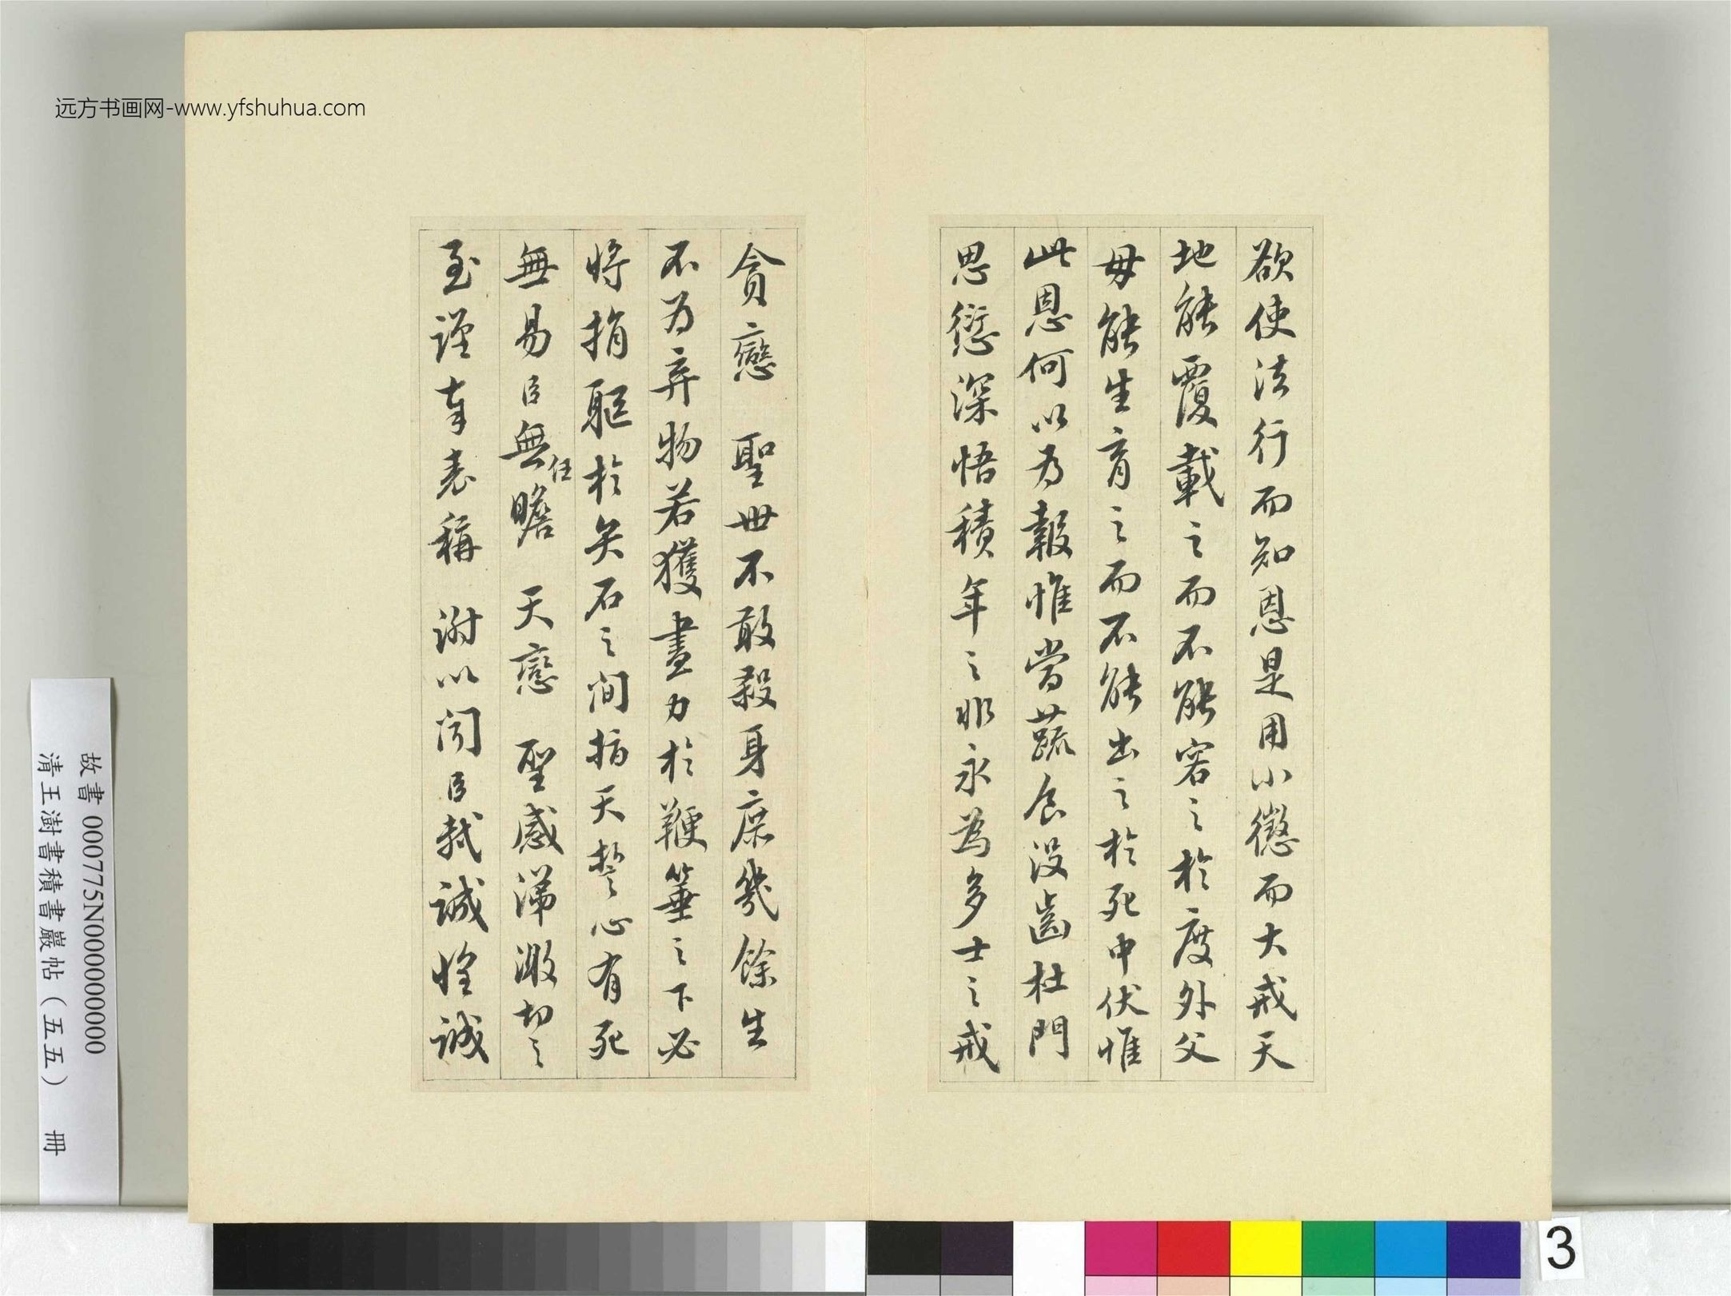 远方书画网-www.yfshuhua.com
欲使法行而知恩是用小懲而大戒天
地能覆載之而不能容之於度外父
母能生育之而不能出之於死中伏惟
此恩何以為報惟當蔬食没齒杜門
思愆深悟積年之非永為多士之戒
貪戀 聖世不敢殺身庶幾餘生
不為棄物若獲盡力於鞭箠之下必
將捐軀於矢石之間指天誓心有死
無易臣無任瞻 天戀 聖感涕激切之
至謹奉表稱 謝以聞臣軾誠惶誠
故書 000775N000000000
清王澍書積書巖帖(五五) 冊
3